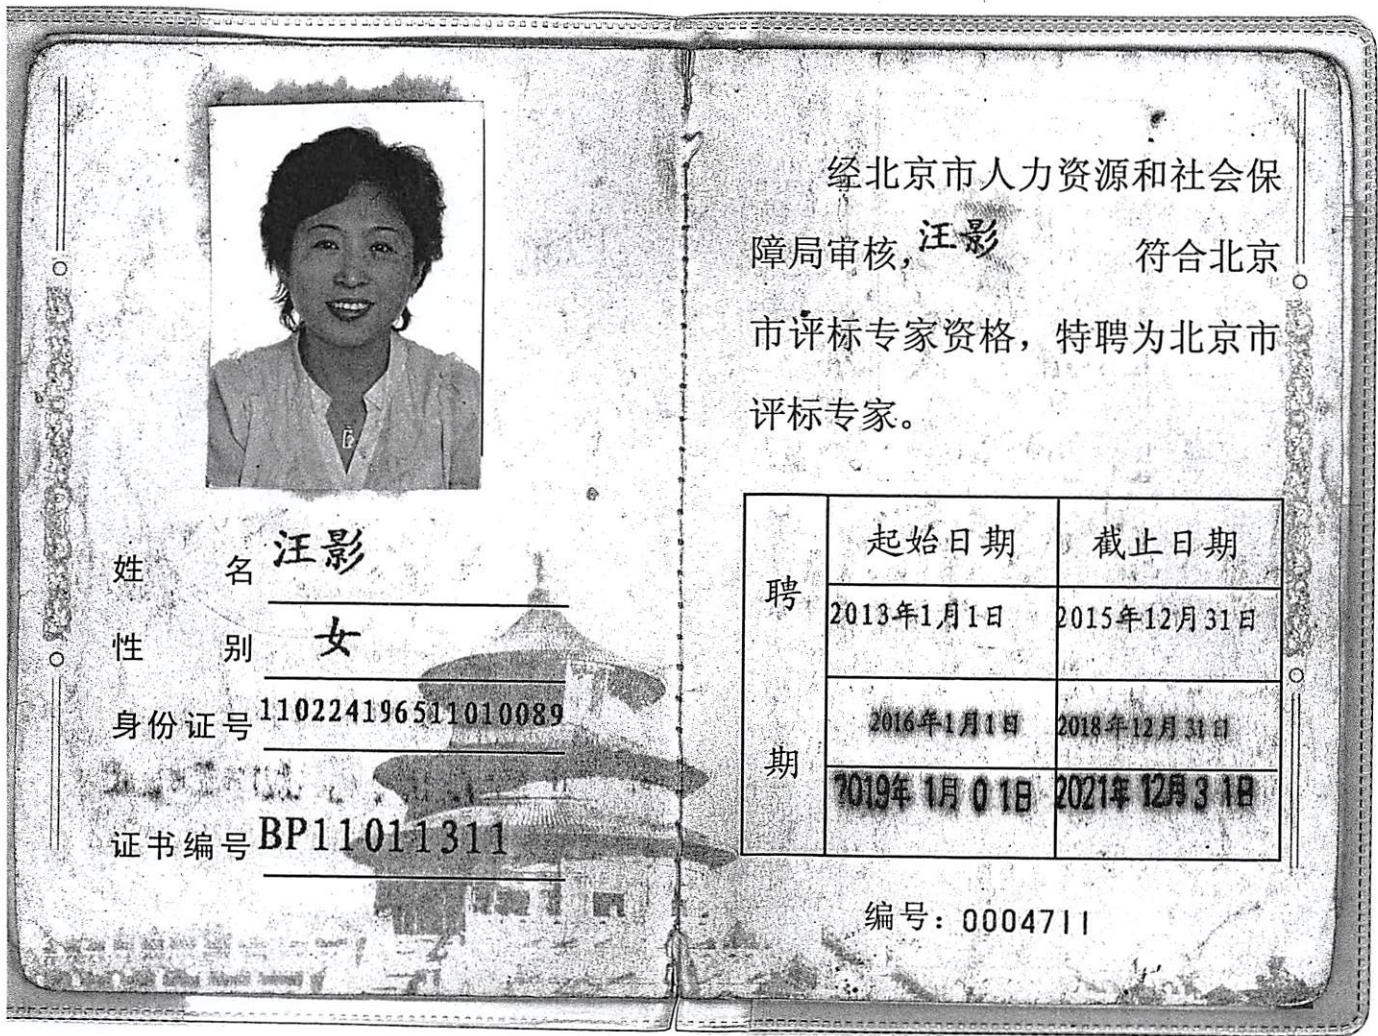 姓名 汪影
性别 女
身份证号 110224196511010089
证书编号 BP11011311
经北京市人力资源和社会保
障局审核，汪影 符合北京
市评标专家资格，特聘为北京市
评标专家。
聘期
起始日期 截止日期
2013年1月1日 2015年12月31日
2016年1月1日 2018年12月31日
2019年1月01日 2021年12月31日
编号：0004711